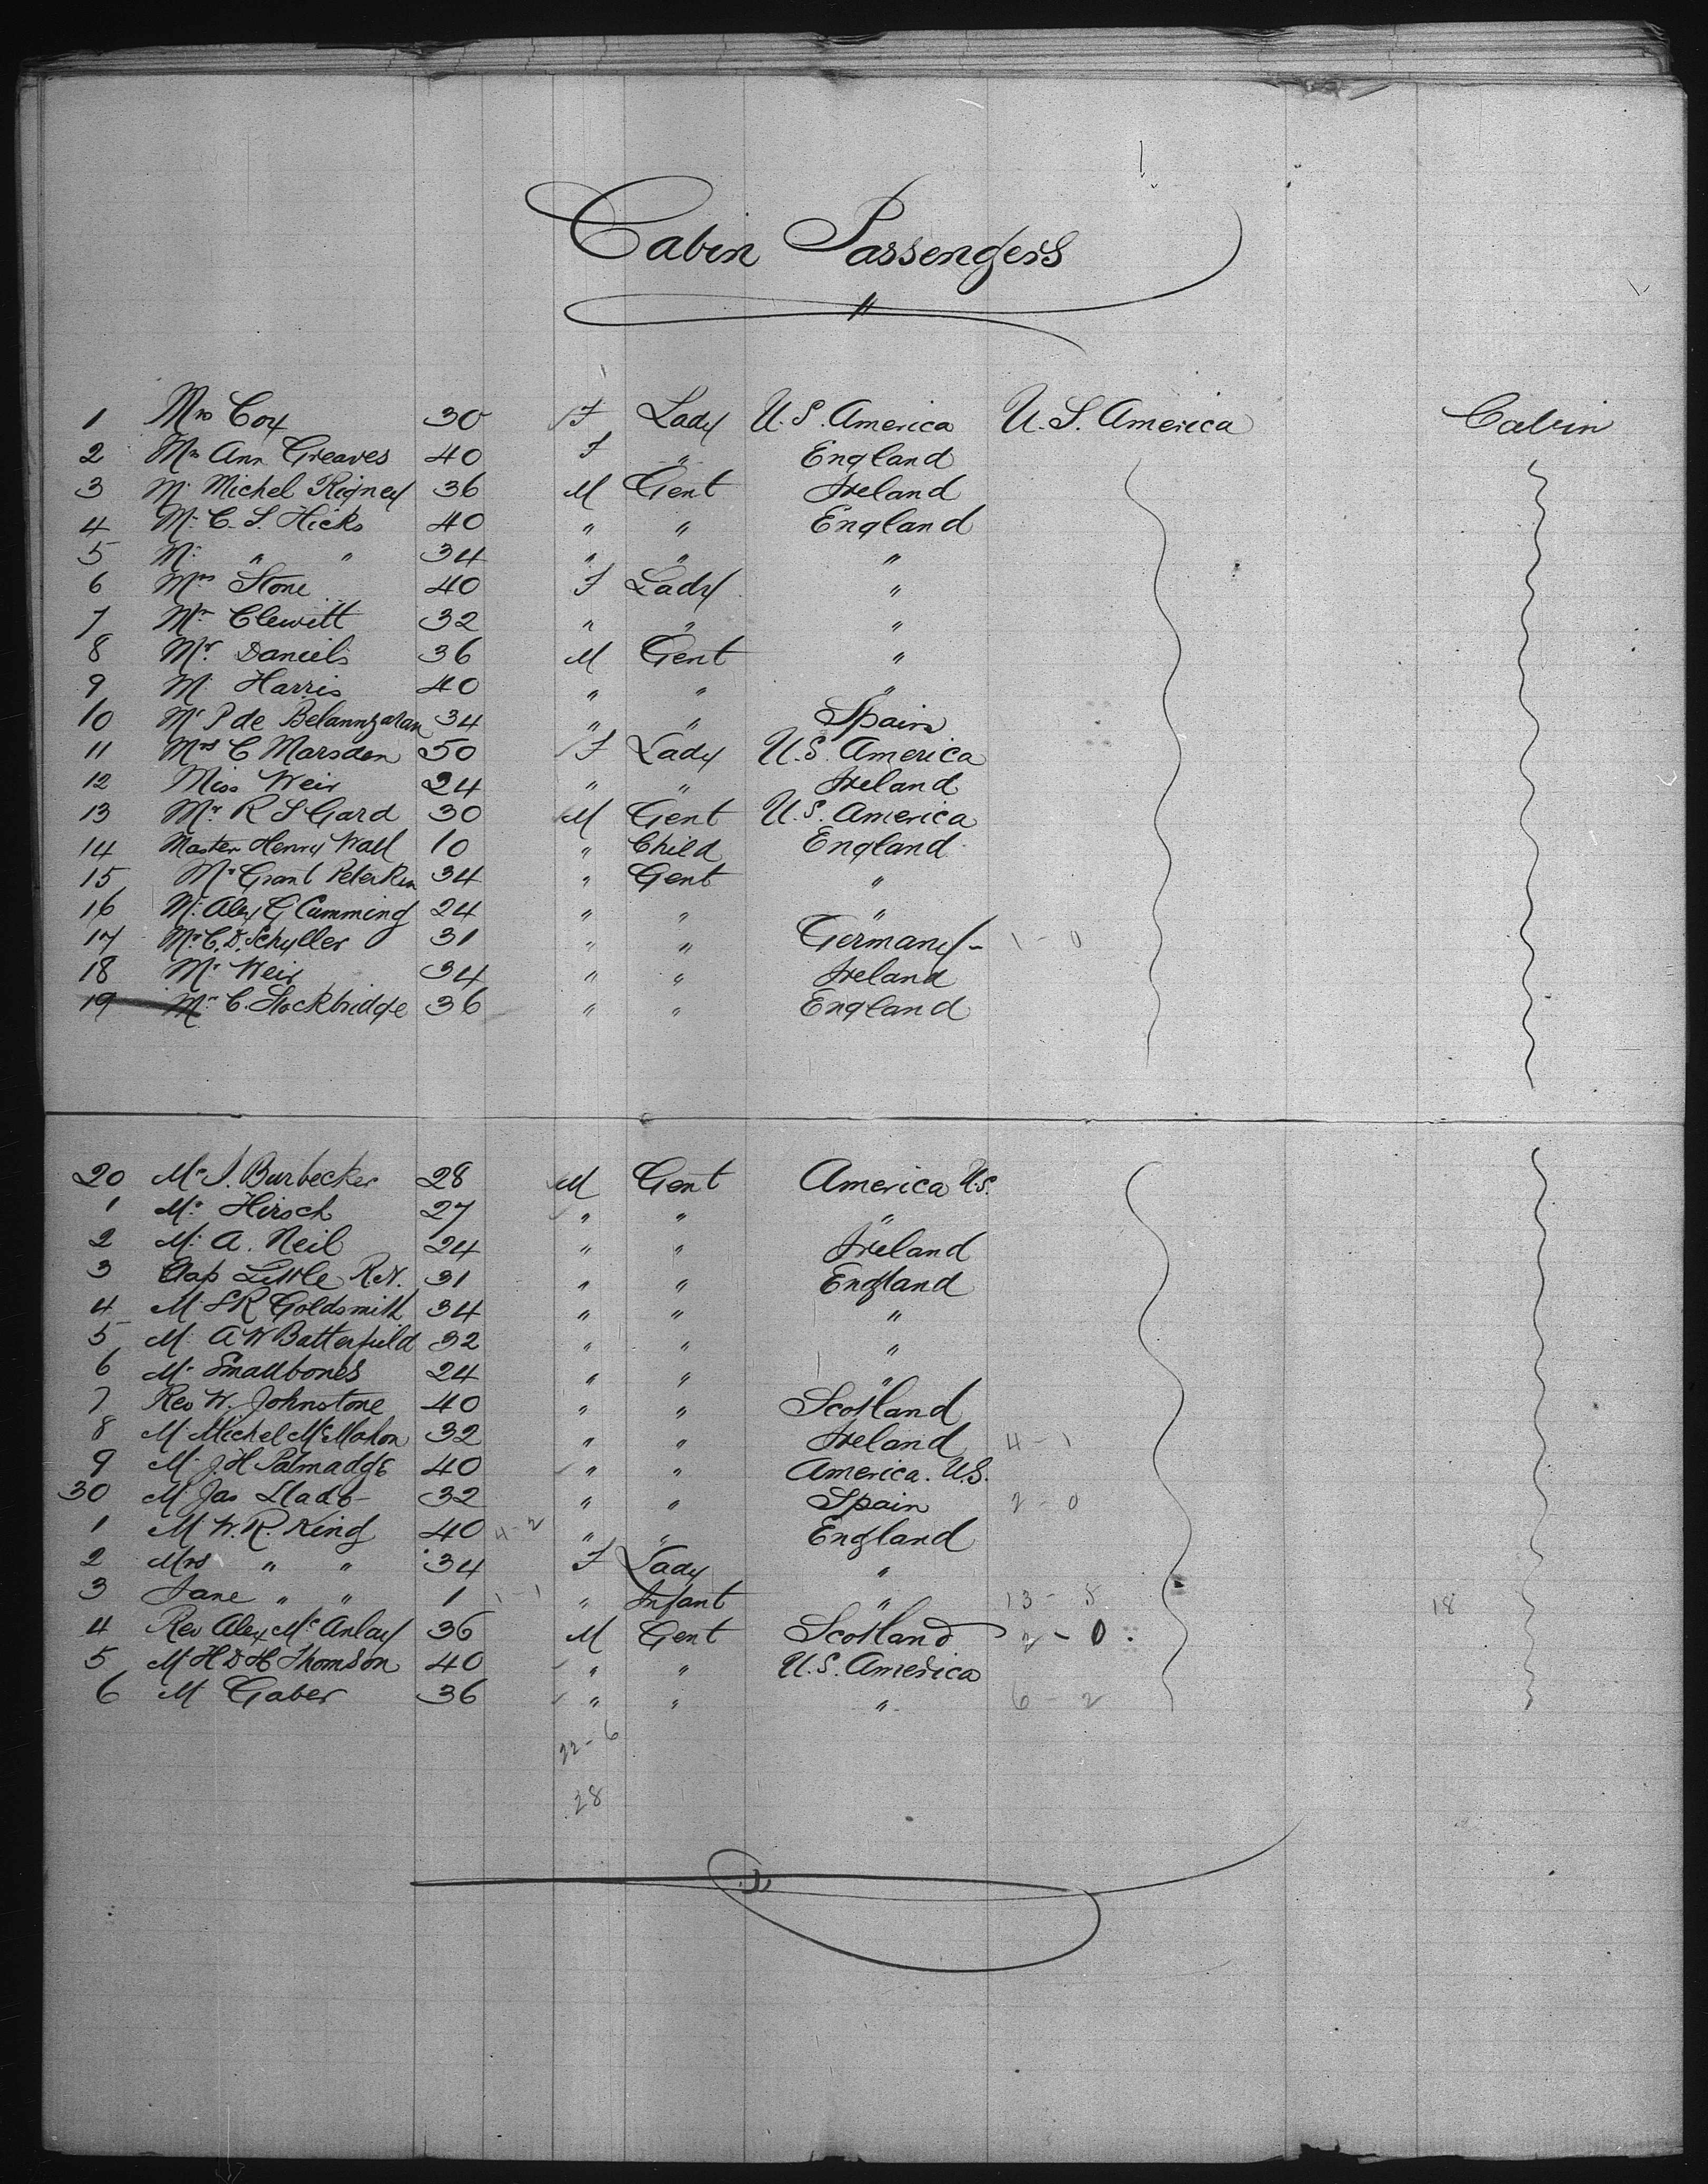 Cabin Passengers
"
1 Mrs Cox 30 F Lady U.S. America U.S. America Cabin
2 Mrs Ann Greaves 40 F " England
3 Mr Michel Rigney 36 M Gent Ireland
4 Mr C. S. Hicks 40 " " England
5 Mr " " 34 " " "
6 Mrs Stone 40 F Lady "
7 Mrs Clewitt 32 " " "
8 Mr Daniels 36 M Gent "
9 Mr Harris 40 " " "
10 Mr P de 34 " " Spain
11 Mrs C Marsden 50 F Lady U.S. America
12 Miss Weir 24 " " Ireland
13 Mr R S Gard 30 M Gent U.S. America
14 Master Henry Wall 10 " Child England
15 Mr Grant Peterkin 34 " Gent "
16 Mr Alex G Cumming 24 " " "
17 Mr C. D. Schyller 31 " " Germany - 1 - 0
18 Mr Weir 34 " " Ireland
19 Mr C. Stockbridge 36 " " England
20 Mr J. Burbecker 28 M Gent America U.S.
1 Mr Hirsch 27 " " "
2 Mr A. Neil 24 " " Ireland
3 Cap Little R.N. 31 " " England
4 Mr S R Goldsmith 34 " " "
5 Mr A W Batterfield 32 " " "
6 Mr Smallbones 24 " " "
7 Rev W. Johnstone 40 " " Scotland
8 M Michel McMahon 32 " " Ireland 4 - 1
9 M J. H Palmadge 40 " " America. U.S.
30 M Jas Llado 32 " " Spain 2 - 0
1 M W. R. King 40 4-2 " " England
2 Mrs " " 34 F Lady "
3 Jane " " 1 1-1 " Infant " 13 - 8 18
4 Rev Alex McAnlay 36 M Gent Scotland 2 - 0
5 M H D H Thomson 40 " " U.S. America
6 M Gaber 36 " " " 6 - 2
22 - 6
28